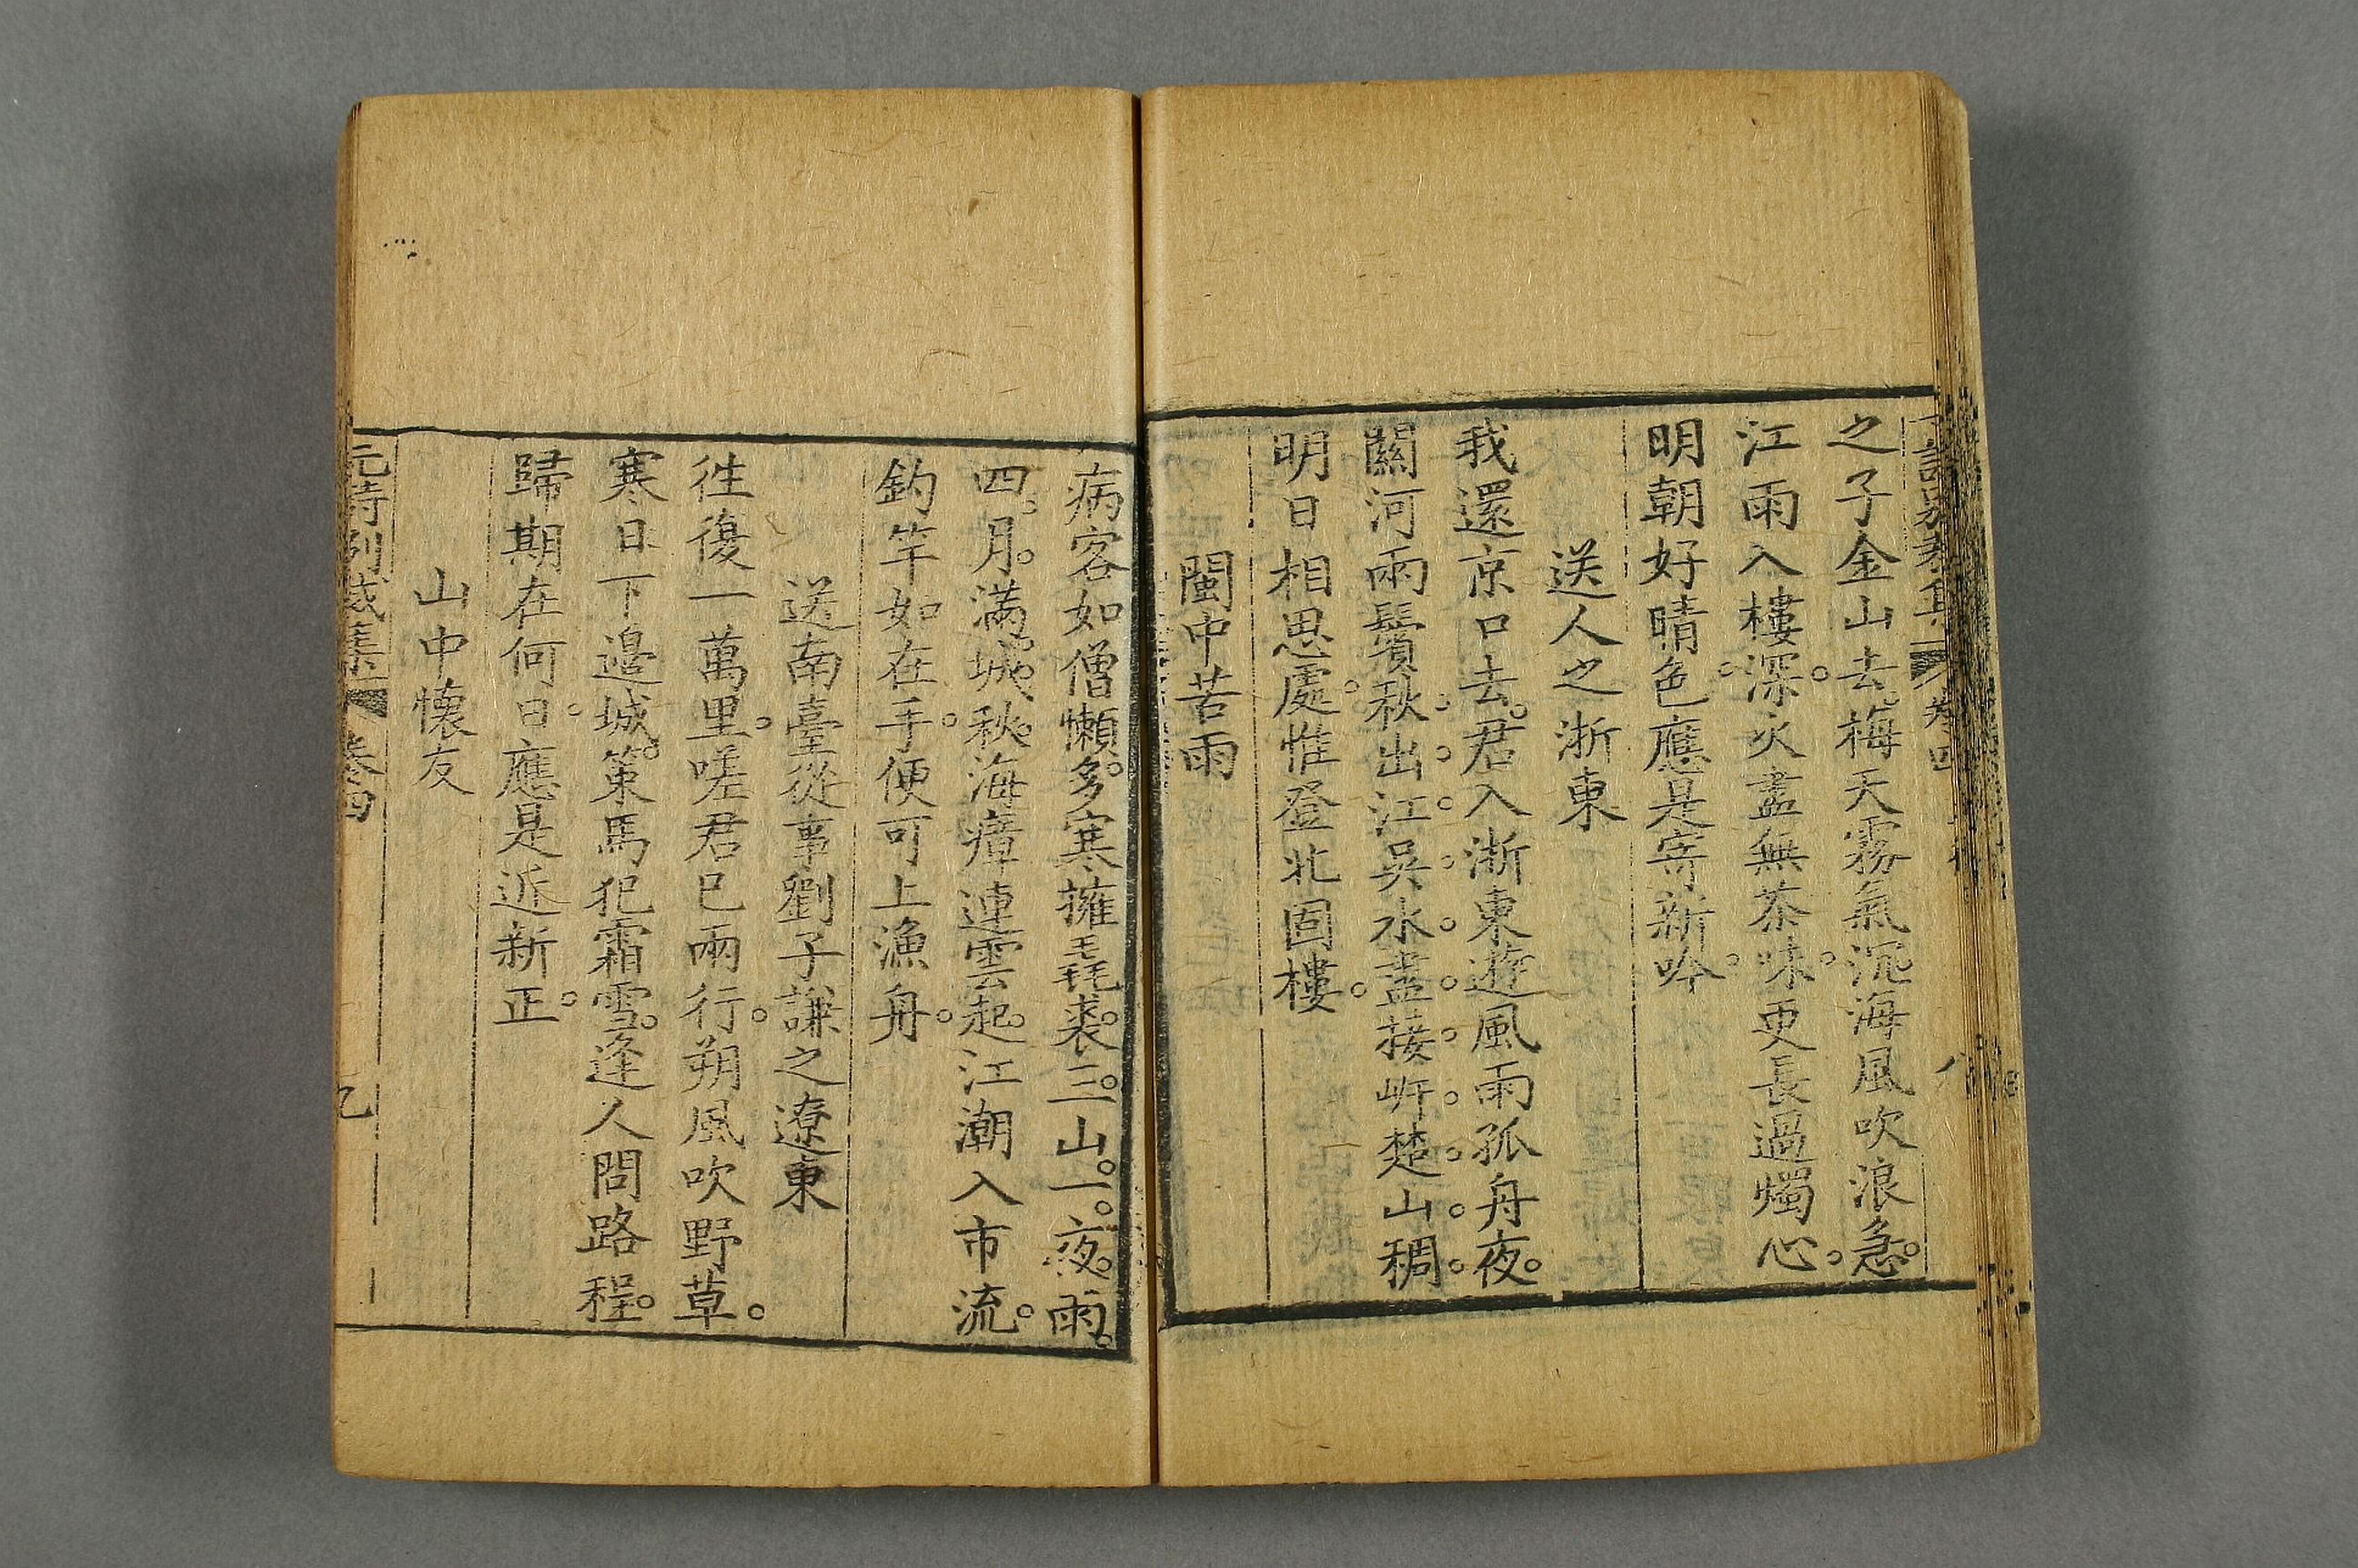 之子金山去。梅天霧氣沉海風吹浪急。
江雨入樓深。火盡無茶味。更長過燭心。
明朝好晴色。應是寄新吟。
送人之浙東
我還京口去。君入浙東遊風雨孤舟夜。
關河兩鬢秋。出。江。吳。水。盡。接。岍。楚。山。稠。
明日相思處。惟登北固樓。
閩中苦雨
病客如僧懶。多寒擁毳裘。三。山。一。夜。雨。
四。月。滿。城。秋。海瘴連雲起。江潮入市流。
釣竿如在手。便可上漁舟。
送南臺從事劉子謙之遼東
徃復一萬里。嗟君已兩行。朔風吹野草。
寒日下邉城。策馬犯霜雪。逢人問路程。
歸期在何日。應是近新正。
山中懷友
元詩別裁集 卷四 九